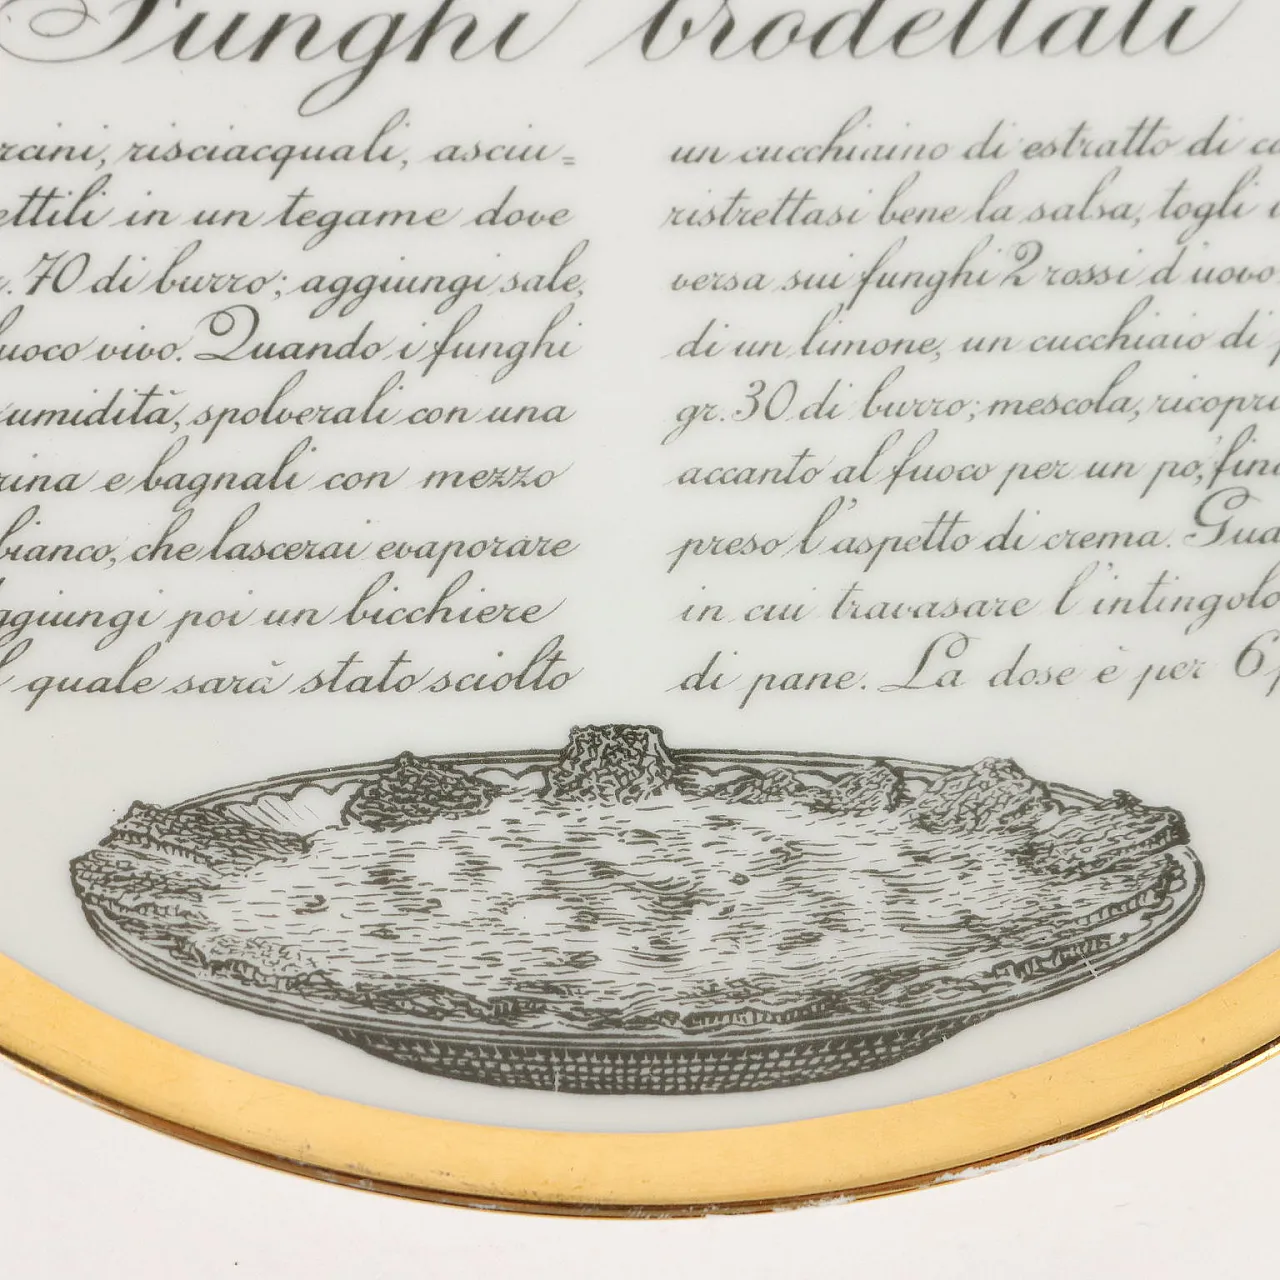 Funghi brodettati
rcini, risciacquali, asciu=
ettili in un tegame dove
r. 70 di burro; aggiungi sale,
uoco vivo. Quando i funghi
umidità, spolverali con una
rina e bagnali con mezzo
bianco, che lascerai evaporare
ggiungi poi un bicchiere
l quale sarà stato sciolto
un cucchiaino di estratto di ca
ristrettasi bene la salsa, togli
versa sui funghi 2 rossi d'uovo
di un limone, un cucchiaio di p
gr. 30 di burro; mescola, ricopri
accanto al fuoco per un po', fin
preso l'aspetto di crema. Gua
in cui travasare l'intingolo
di pane. La dose è per 6 p